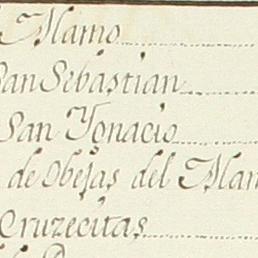 Alamo
San Sebastian
San Ygnacio
de Obejas del Alam
Cruzecitas